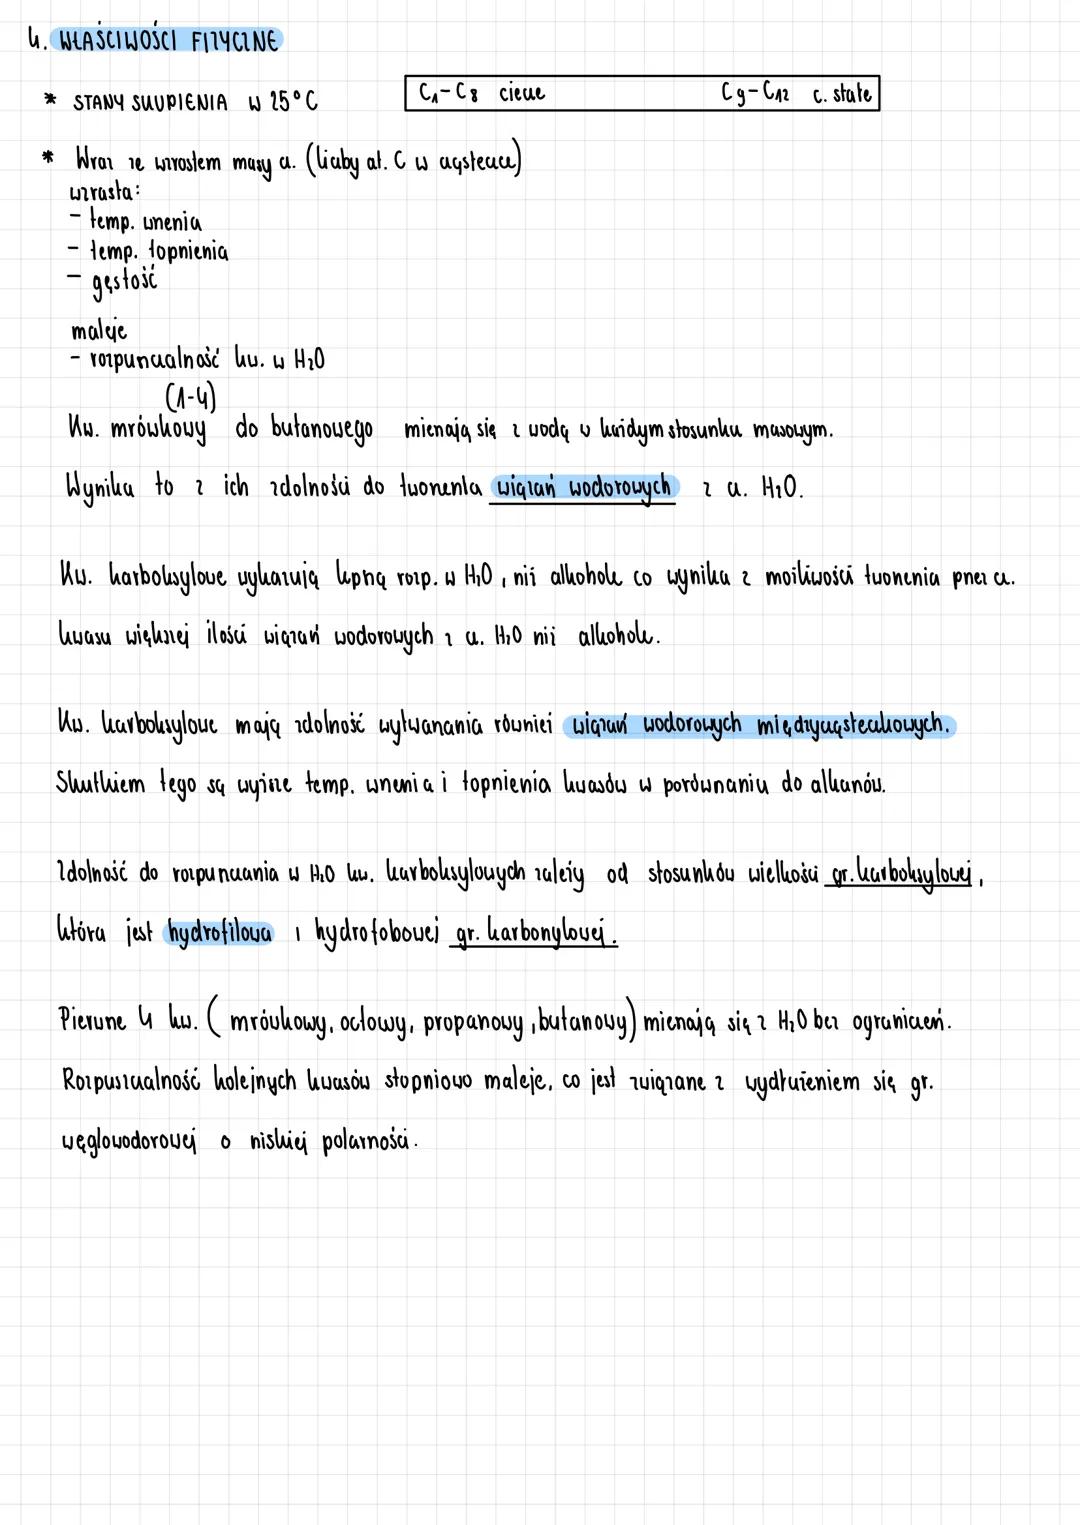 4. WŁAŚCIWOŚCI FIZYCZNE
* STANY SKUPIENIA w 25°C
C₁-C₈ ciecze C₉-C₁₂ c. stałe
* Wraz ze wzrostem masy cz. (liczby at. C w cząsteczce)
wzrasta:
- temp. wrzenia
- temp. topnienia
- gęstość
maleje
- rozpuszczalność kw. w H₂O
(1-4)
Kw. mrówkowy do butanowego mieszają się z wodą w każdym stosunku masowym.
Wynika to z ich zdolności do tworzenia wiązań wodorowych z cz. H₂O.
Kw. karboksylowe wykazują lepszą rozp. w H₂O, niż alkohole co wynika z możliwości tworzenia przez cz.
kwasu większej ilości wiązań wodorowych z cz. H₂O niż alkohole.
Kw. karboksylowe mają zdolność wytwarzania również wiązań wodorowych międzycząsteczkowych.
Skutkiem tego są wyższe temp. wrzenia i topnienia kwasów w porównaniu do alkanów.
Zdolność do rozpuszczania w H₂O kw. karboksylowych zależy od stosunków wielkości gr. karboksylowej,
która jest hydrofilowa i hydrofobowej gr. karbonylowej.
Pierwsze 4 kw. (mrówkowy, octowy, propanowy, butanowy) mieszają się z H₂O bez ograniczeń.
Rozpuszczalność kolejnych kwasów stopniowo maleje, co jest związane z wydłużeniem się gr.
węglowodorowej o niskiej polarności.